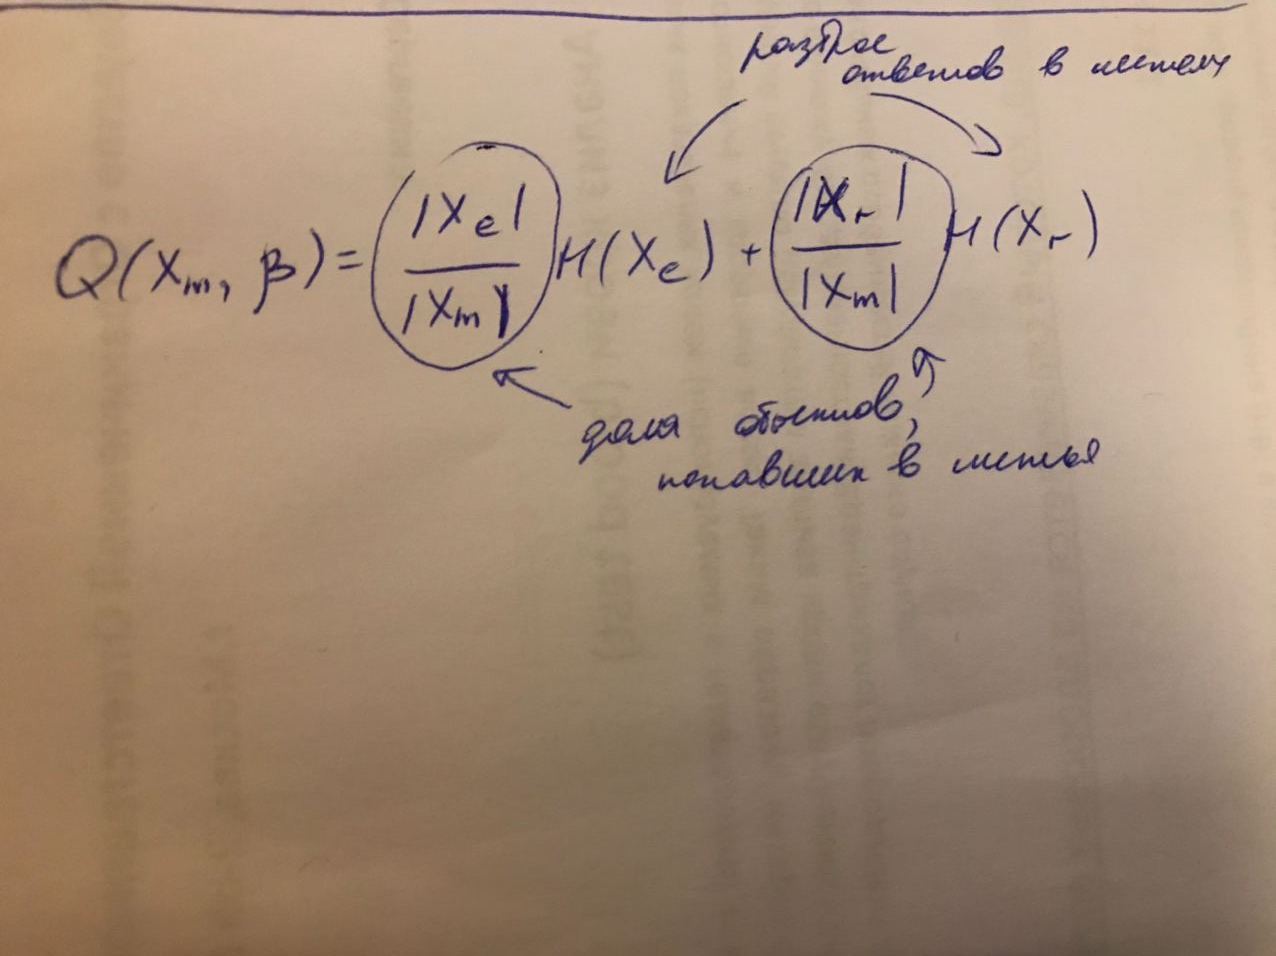 разброс
ответов в листьях
Q(Xₘ, β) = |Xₑ| / |Xₘ| H(Xₑ) + |Xᵣ| / |Xₘ| H(Xᵣ)
доля объектов,
попавших в листья